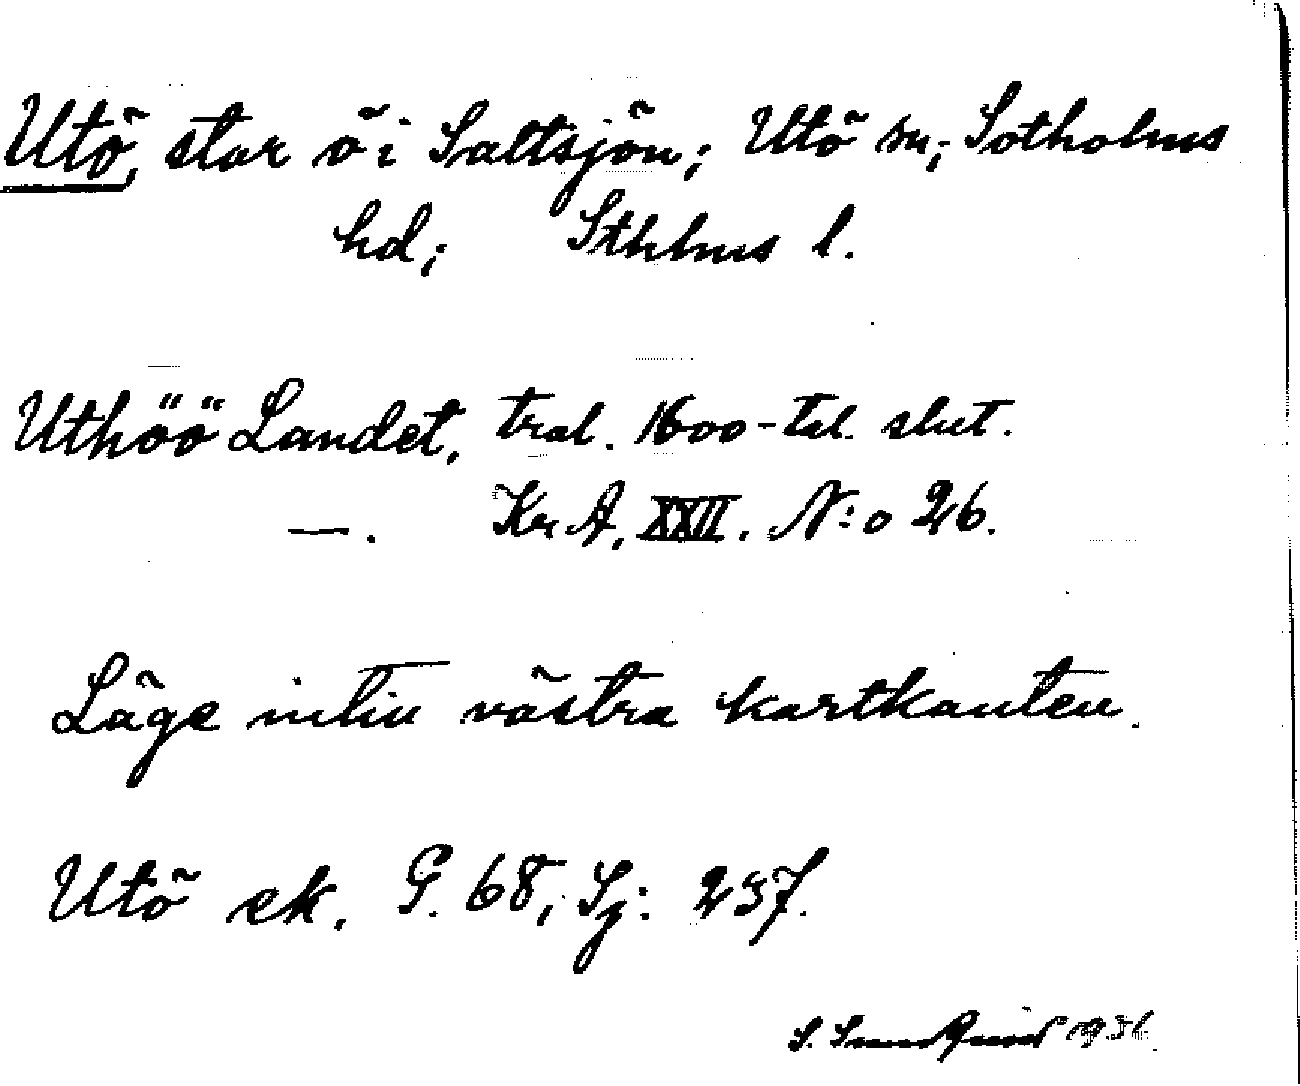 Utö, stor ö i Saltsjön; Utö sn; Sotholms
hd; Sthlms l.
Uthöö Landet, trol. 1600-tal. slut.
—. KrA, XXII. N:o 26.
Läge intill västra kartkanten.
Utö ek. G. 68; Sj: 237.
S. 193